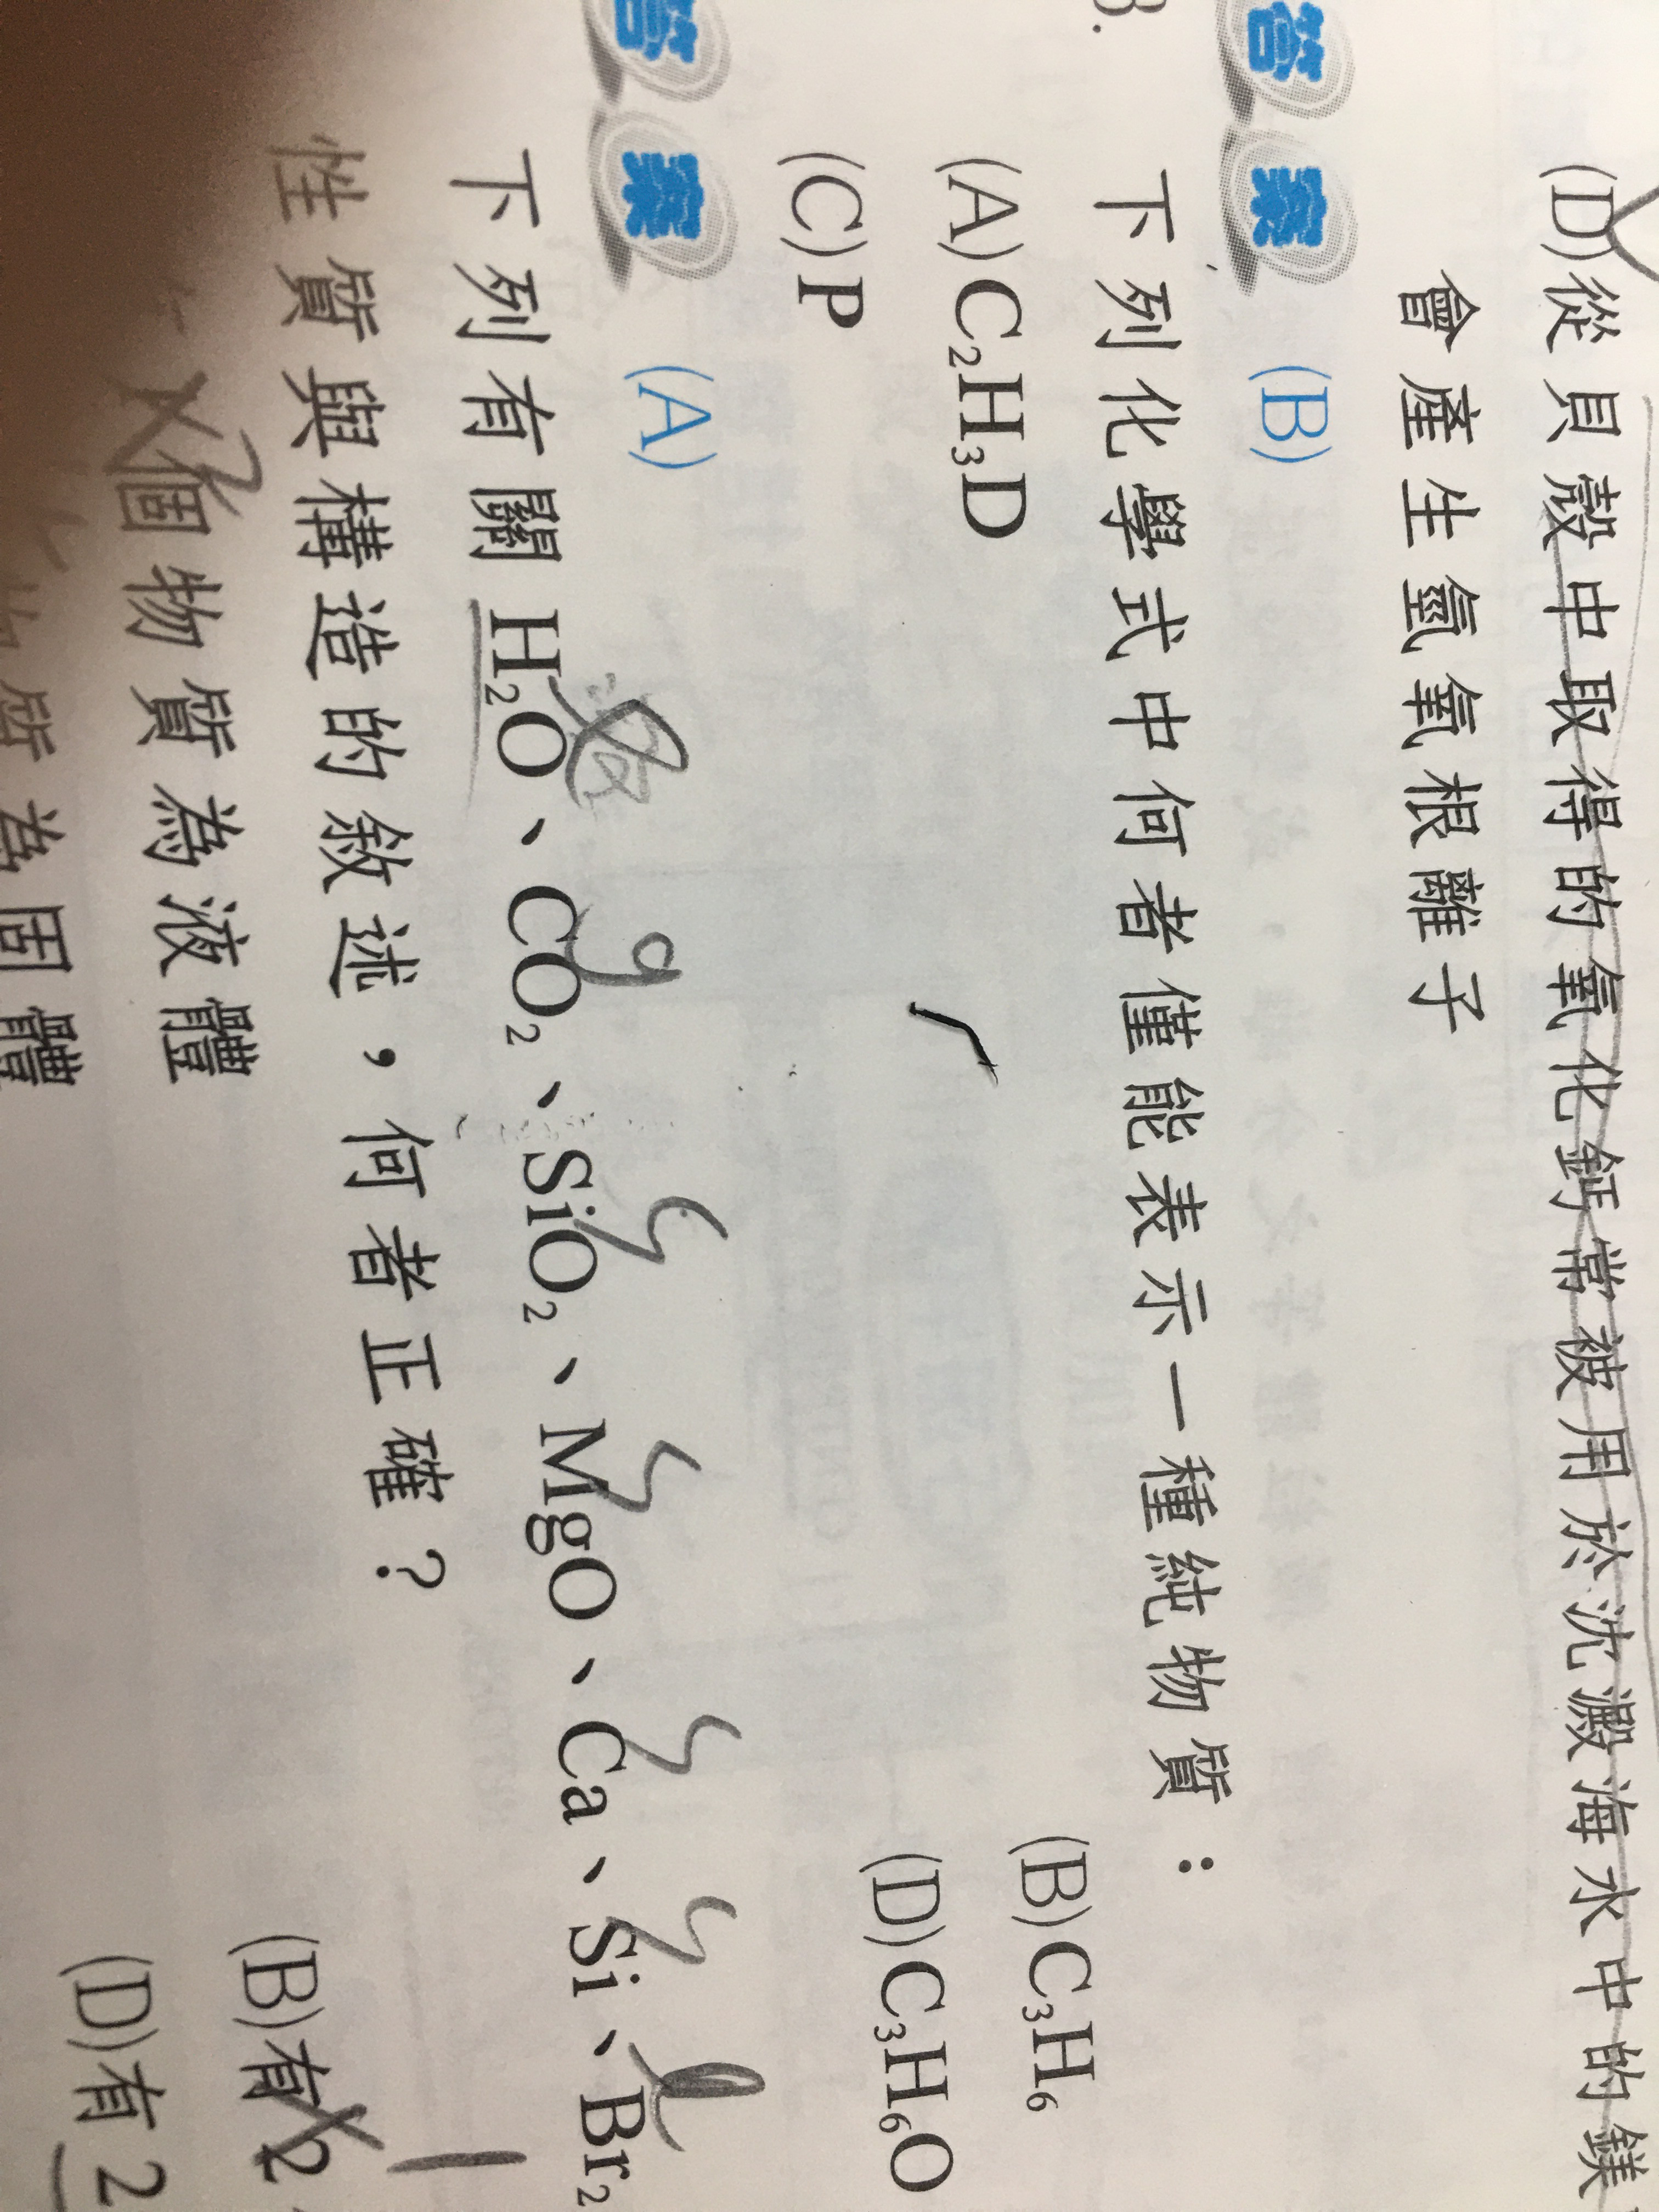 (D)從貝殼中取得的氧化鈣常被用於沈澱海水中的鎂
會產生氫氧根離子
答案 (B)
3. 下列化學式中何者僅能表示一種純物質：
(A)C₂H₃D (B)C₃H₆
(C)P (D)C₃H₆O
答案 (A)
下列有關 H₂O、CO₂、SiO₂、MgO、Ca、Si、Br₂
性質與構造的敘述，何者正確？
個物質為液體 (B)有 2
物質為固體 (D)有 2